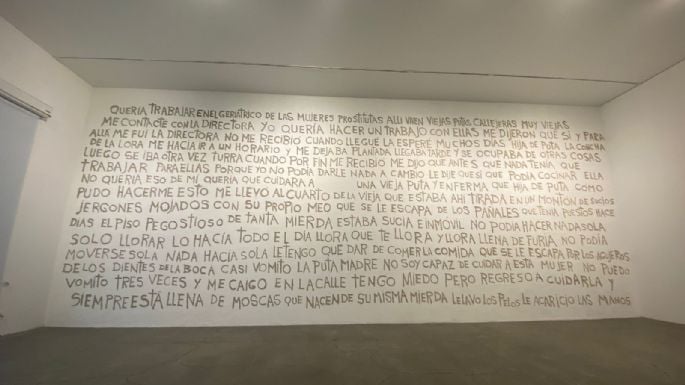 QUERIA TRABAJAR EN EL GERIATRICO DE LAS MUJERES PROSTITUTAS ALLI VIVEN VIEJAS PUTAS CALLEJERAS MUY VIEJAS
ME CONTACTE CON LA DIRECTORA YO QUERÍA HACER UN TRABAJO CON ELLAS ME DIJERON QUE SI Y PARA
ALLA ME FUI LA DIRECTORA NO ME RECIBIO CUANDO LLEGUE LA ESPERE MUCHOS DIAS HIJA DE PUTA LA CONCHA
DE LA LORA ME HACIA IR A UN HORARIO Y ME DEJABA PLANTADA LLEGABA TARDE Y SE OCUPABA DE OTRAS COSAS
LUEGO SE IBA OTRA VEZ TURRA CUANDO POR FIN ME RECIBIO ME DIJO QUE ANTES QUE NADA TENIA QUE
TRABAJAR PARA ELLAS PORQUE YO NO PODIA DARLE NADA A CAMBIO LE DIJE QUE SI QUE PODIA COCINAR ELLA
NO QUERIA ESO DE MI QUERIA QUE CUIDARA A UNA VIEJA PUTA Y ENFERMA QUE HIJA DE PUTA COMO
PUDO HACERME ESTO ME LLEVO AL CUARTO DE LA VIEJA QUE ESTABA AHI TIRADA EN UN MONTON DE SUCIOS
JERGONES MOJADOS CON SU PROPIO MEO QUE SE LE ESCAPA DE LOS PAÑALES QUE TENIA PUESTOS HACE
DIAS EL PISO PEGOSTIOSO DE TANTA MIERDA ESTABA SUCIA E INMOVIL NO PODIA HACER NADA SOLA
SOLO LLORAR LO HACIA TODO EL DIA LLORA QUE TE LLORA Y LLORA LLENA DE FURIA NO PODIA
MOVERSE SOLA NADA HACIA SOLA LE TENGO QUE DAR DE COMER LA COMIDA QUE SE LE ESCAPA POR LOS AGUJEROS
DE LOS DIENTES DE LA BOCA CASI VOMITO LA PUTA MADRE NO SOY CAPAZ DE CUIDAR A ESTA MUJER NO PUEDO
VOMITO TRES VECES Y ME CAIGO EN LA CALLE TENGO MIEDO PERO REGRESO A CUIDARLA Y
SIEMPRE ESTÁ LLENA DE MOSCAS QUE NACEN DE SU MISMA MIERDA LE LAVO LOS PELOS LE ACARICIO LAS MANOS